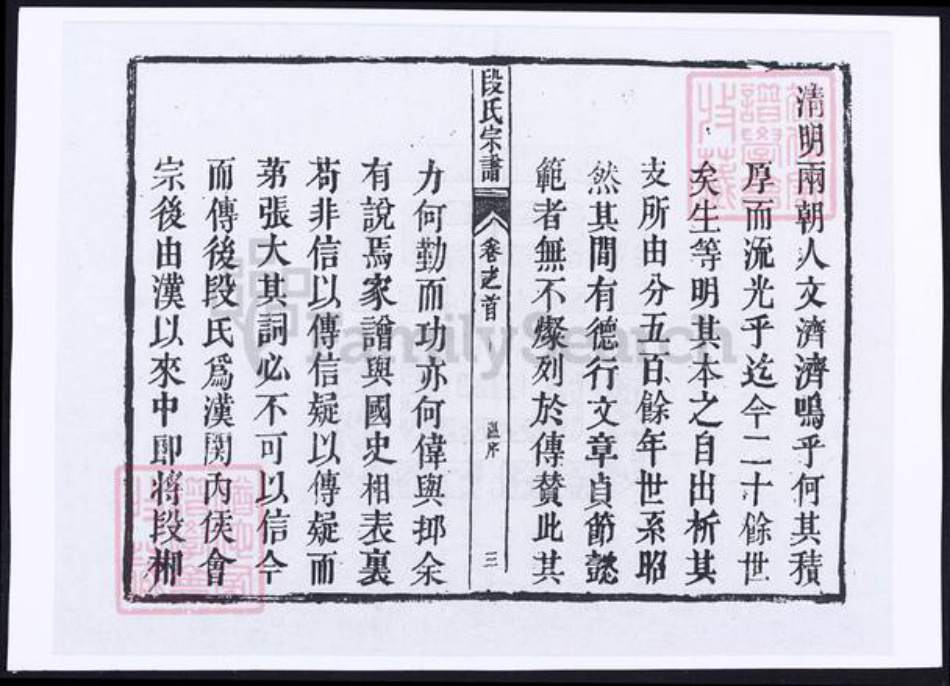 清明兩朝人文濟濟嗚乎何其積
厚而流光乎迄今二十餘世
矣生等明其本之自出析其
支所由分五百餘年世系昭
然其間有德行文章貞節懿
範者無不燦列於傳贊此其
段氏宗譜
卷之首
序
三
力何勤而功亦何偉與抑余
有說焉家譜與國史相表裏
苟非信以傳信疑以傳疑而
第張大其詞必不可以信今
而傳後段氏爲漢関內侯會
宗後由漢以來中即將段栁
FamilySearch